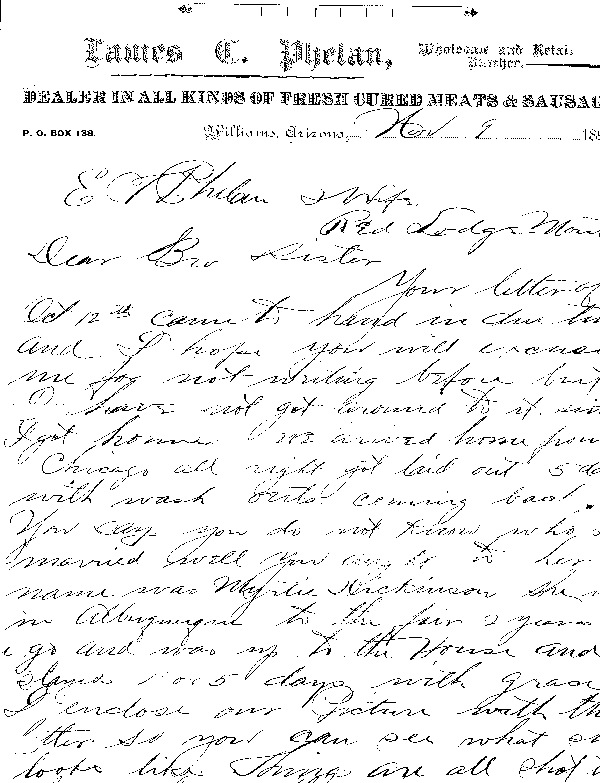 James C. Phelan,
Wholesale and Retail
Butcher,
DEALER IN ALL KINDS OF FRESH CURED MEATS & SAUSAG
P. O. BOX 138.
Williams, Arizona, Nov 9 189
E V Phelan & Wife
Red Lodge Mon
Dear Bro & Sister
Your letter of
Oct 12th came to hand in due tim
and I hope you will excuse
me for not writing before but
I have not got around to it sin
I got home we arived home from
Chicago all right got laid out 5 da
with wash outs coming back.
You say you do not know who
married well you ought to her
name was Dickinson She
in Albuquerque to the fair 2 years
go and was up to the House and
5 days with Grace
I enclose our Picture with th
so you can see what s
looks like Things are all shot